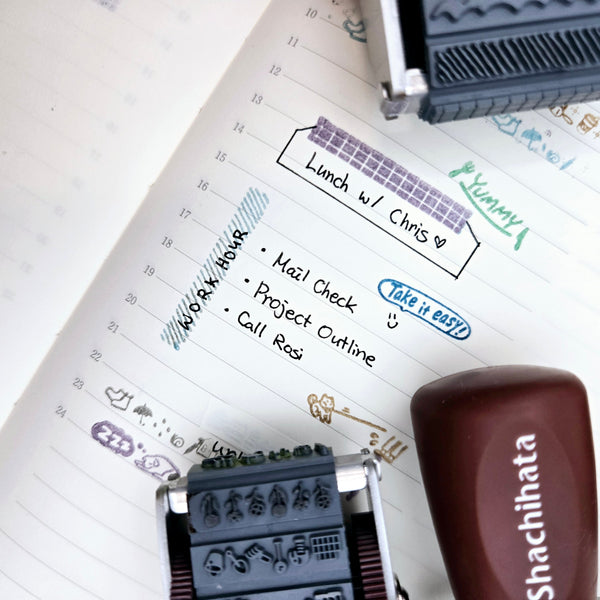 10
11
12
13
14
Lunch w/ Chris ♡
YUMMY!
15
16
17
WORK HOUR
18
• Mail Check
19
• Project Outline
Take it easy!
20
• Call Rosi
21
22
23
24
zzz
Shachihata